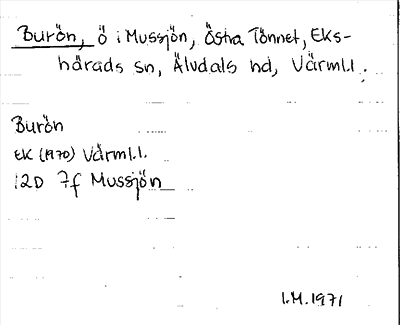 Burön, ö i Mussjön, Östra Tönnet, Eks-
härads sn, Älvdals hd, Värml.l.
Burön
EK (1970) Värml.l.
12D 7f Mussjön
I.M.1971